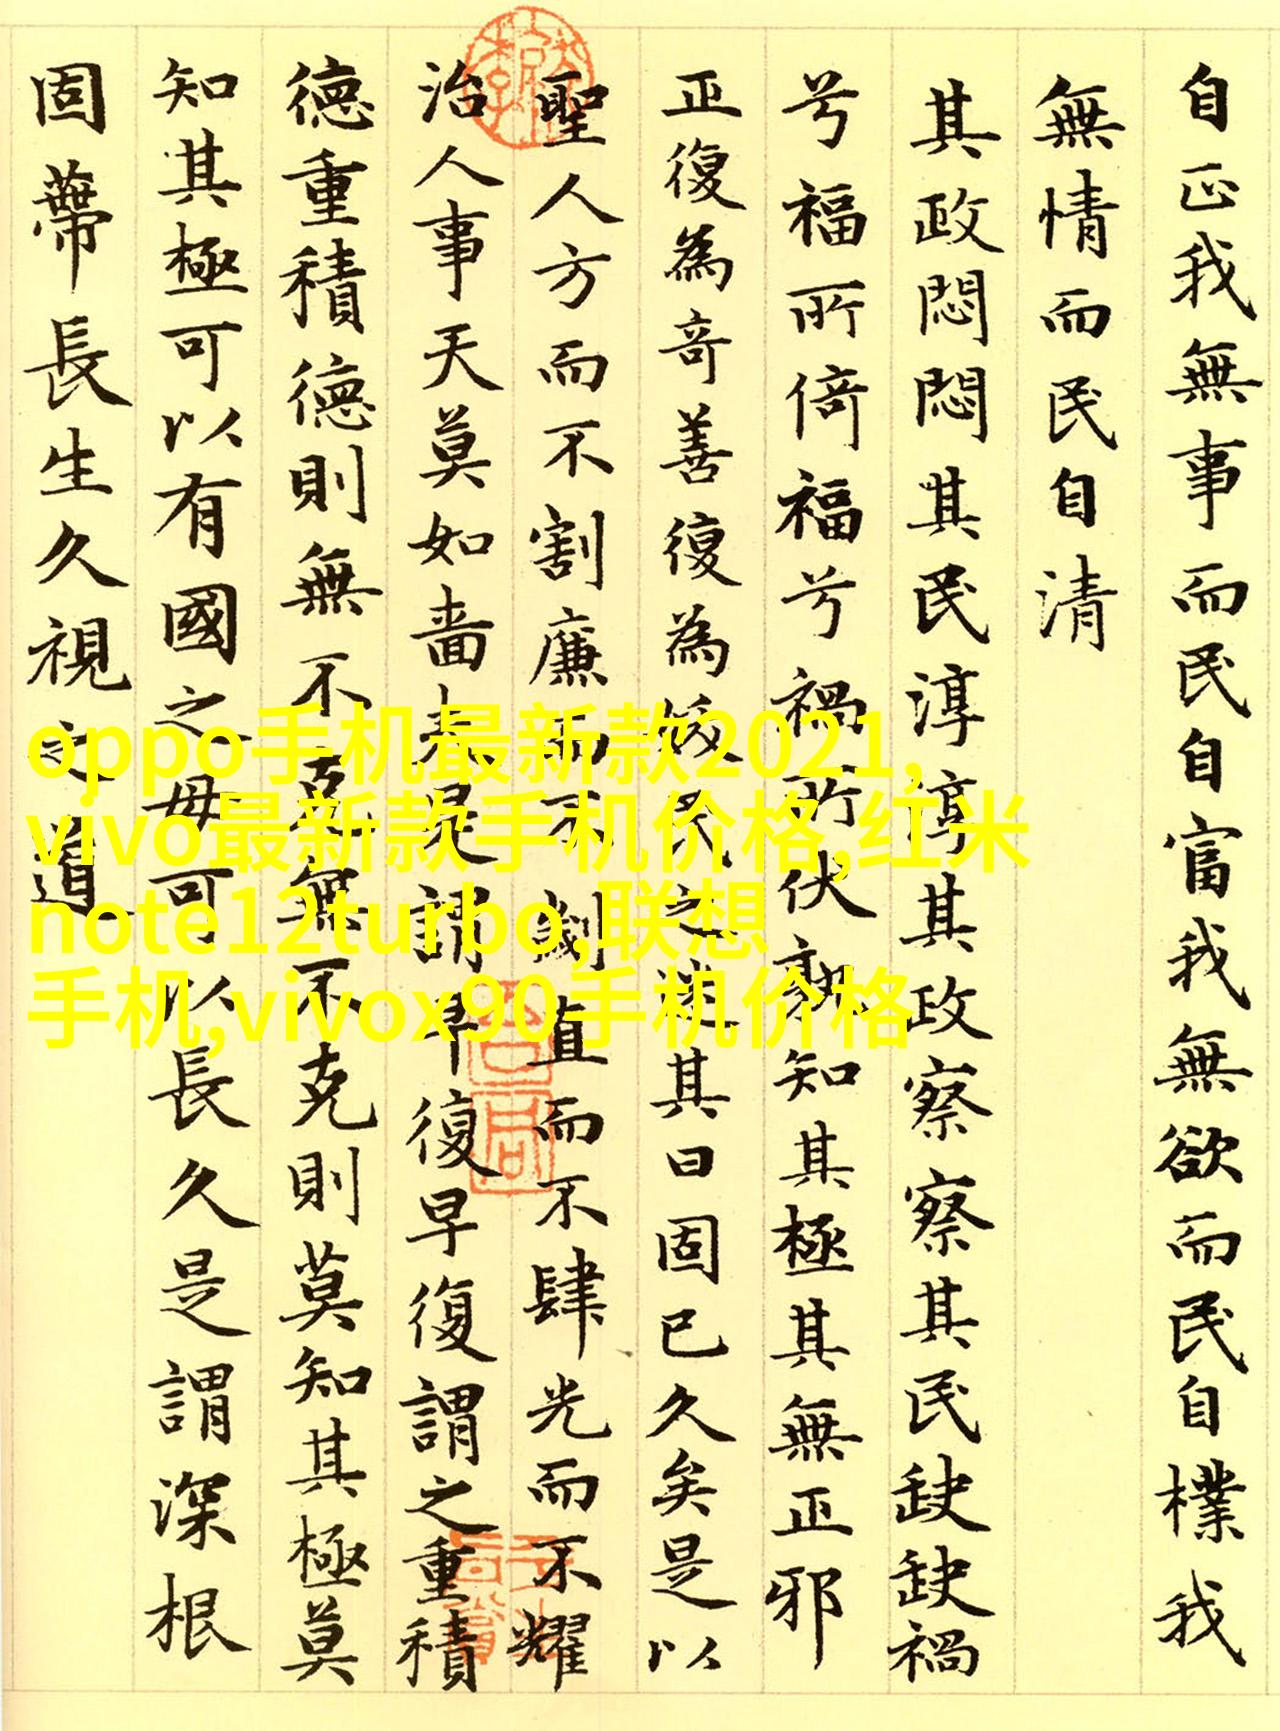 自正我無事而民自富我無欲而民自樸我
無情而民自清
其政悶悶其民淳淳其政察察其民缺缺禍
兮福所倚福兮禍所伏孰知其極其無正邪
正復為奇善復為妖民之迷其曰固已久矣是以
聖人方而不割廉而不劌直而不肆光而不耀
治人事天莫如嗇夫是謂早復早復謂之重積
德重積德則無不克無不克則莫知其極莫
知其極可以有國之母可以長久是謂深根
固蔕長生久視之道
oppo手机最新款2021,
vivo最新款手机价格,红米
note12turbo,联想
手机,vivox90手机价格